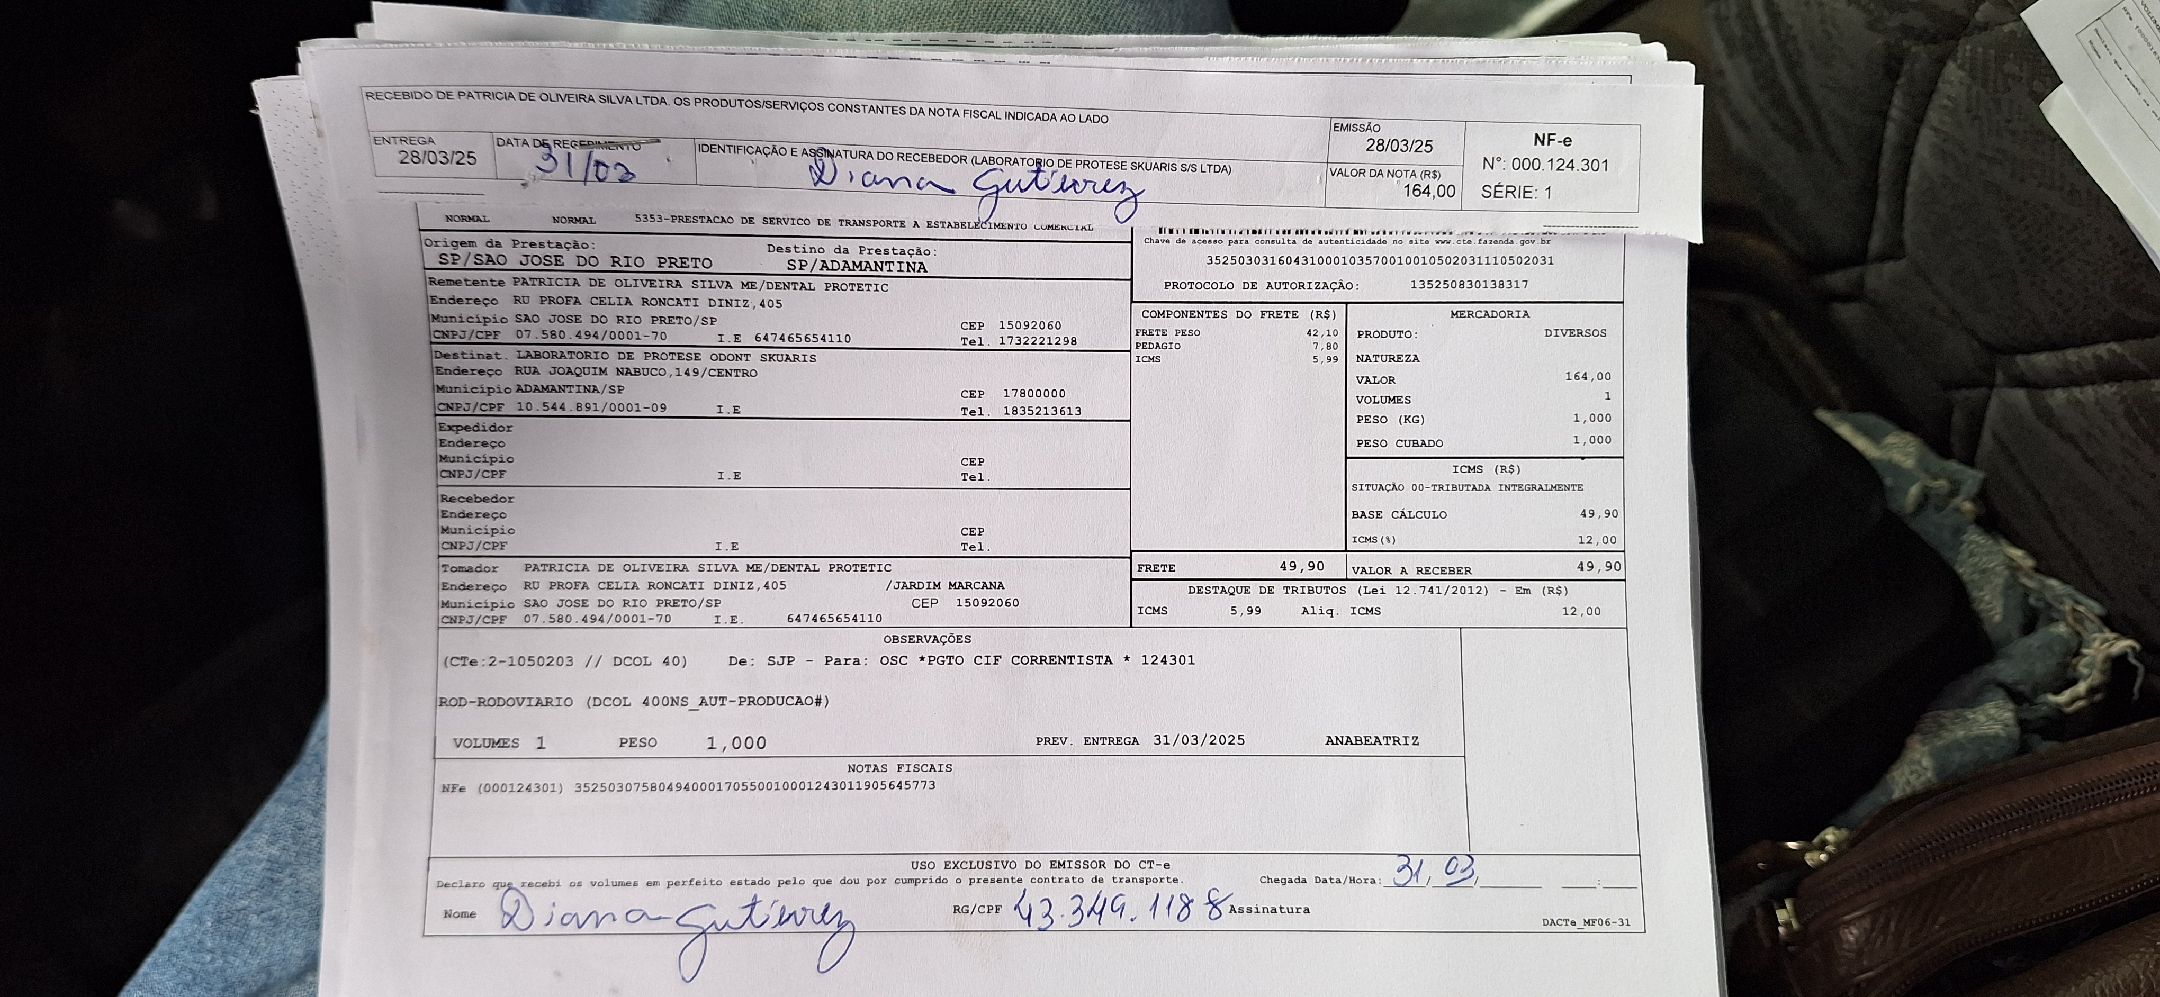 RECEBIDO DE PATRICIA DE OLIVEIRA SILVA LTDA. OS PRODUTOS/SERVIÇOS CONSTANTES DA NOTA FISCAL INDICADA AO LADO
ENTREGA
28/03/25
DATA DE RECEBIMENTO
31/03
IDENTIFICAÇÃO E ASSINATURA DO RECEBEDOR (LABORATORIO DE PROTESE SKUARIS S/S LTDA)
Diana Gutierrez
EMISSÃO
28/03/25
VALOR DA NOTA (R$)
164,00
NF-e
N°: 000.124.301
SÉRIE: 1
NORMAL NORMAL 5353-PRESTACAO DE SERVICO DE TRANSPORTE A ESTABELECIMENTO COMERCIAL
Origem da Prestação: Destino da Prestação:
SP/SAO JOSE DO RIO PRETO SP/ADAMANTINA
Chave de acesso para consulta de autenticidade no site www.cte.fazenda.gov.br
35250303160431000103570010010502031110502031
PROTOCOLO DE AUTORIZAÇÃO: 135250830138317
Remetente PATRICIA DE OLIVEIRA SILVA ME/DENTAL PROTETIC
Endereço RU PROFA CELIA RONCATI DINIZ,405
Município SAO JOSE DO RIO PRETO/SP CEP 15092060
CNPJ/CPF 07.580.494/0001-70 I.E 647465654110 Tel. 1732221298
Destinat. LABORATORIO DE PROTESE ODONT SKUARIS
Endereço RUA JOAQUIM NABUCO,149/CENTRO
Município ADAMANTINA/SP CEP 17800000
CNPJ/CPF 10.544.891/0001-09 I.E Tel. 1835213613
Expedidor
Endereço
Município CEP
CNPJ/CPF I.E Tel.
Recebedor
Endereço
Município CEP
CNPJ/CPF I.E Tel.
Tomador PATRICIA DE OLIVEIRA SILVA ME/DENTAL PROTETIC
Endereço RU PROFA CELIA RONCATI DINIZ,405 /JARDIM MARCANA
Município SAO JOSE DO RIO PRETO/SP CEP 15092060
CNPJ/CPF 07.580.494/0001-70 I.E. 647465654110
COMPONENTES DO FRETE (R$)
FRETE PESO 42,10
PEDAGIO 7,80
ICMS 5,99
MERCADORIA
PRODUTO: DIVERSOS
NATUREZA
VALOR 164,00
VOLUMES 1
PESO (KG) 1,000
PESO CUBADO 1,000
ICMS (R$)
SITUAÇÃO 00-TRIBUTADA INTEGRALMENTE
BASE CÁLCULO 49,90
ICMS(%) 12,00
FRETE 49,90 VALOR A RECEBER 49,90
DESTAQUE DE TRIBUTOS (Lei 12.741/2012) - Em (R$)
ICMS 5,99 Aliq. ICMS 12,00
OBSERVAÇÕES
(CTe:2-1050203 // DCOL 40) De: SJP - Para: OSC *PGTO CIF CORRENTISTA * 124301
ROD-RODOVIARIO (DCOL 400NS_AUT-PRODUCAO#)
VOLUMES 1 PESO 1,000 PREV. ENTREGA 31/03/2025 ANABEATRIZ
NOTAS FISCAIS
NFe (000124301) 35250307580494000170550010001243011905645773
USO EXCLUSIVO DO EMISSOR DO CT-e
Declaro que recebi os volumes em perfeito estado pelo que dou por cumprido o presente contrato de transporte. Chegada Data/Hora: 31/03/
Nome Diana Gutierrez RG/CPF 43.349.118 8 Assinatura
DACTe_MF06-31